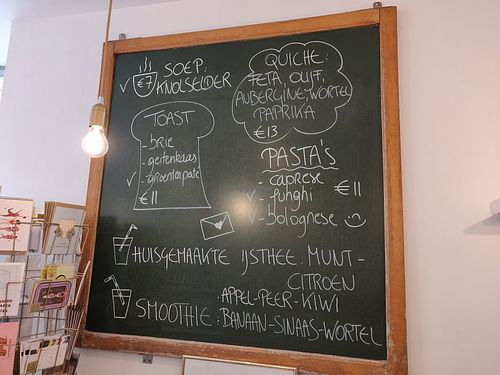 SOEP:
€7 KNOLSELDER
QUICHE:
FETA, OLIJF,
AUBERGINE, WORTEL
PAPRIKA
€13
TOAST
- brie
- geitenkaas
- groentenpaté
€11
PASTA's
- caprese
- funghi
€11
- bolognese
HUISGEMAAKTE IJSTHEE: MUNT-
CITROEN
SMOOTHIE: • APPEL-PEER-KIWI
• BANAAN-SINAAS-WORTEL